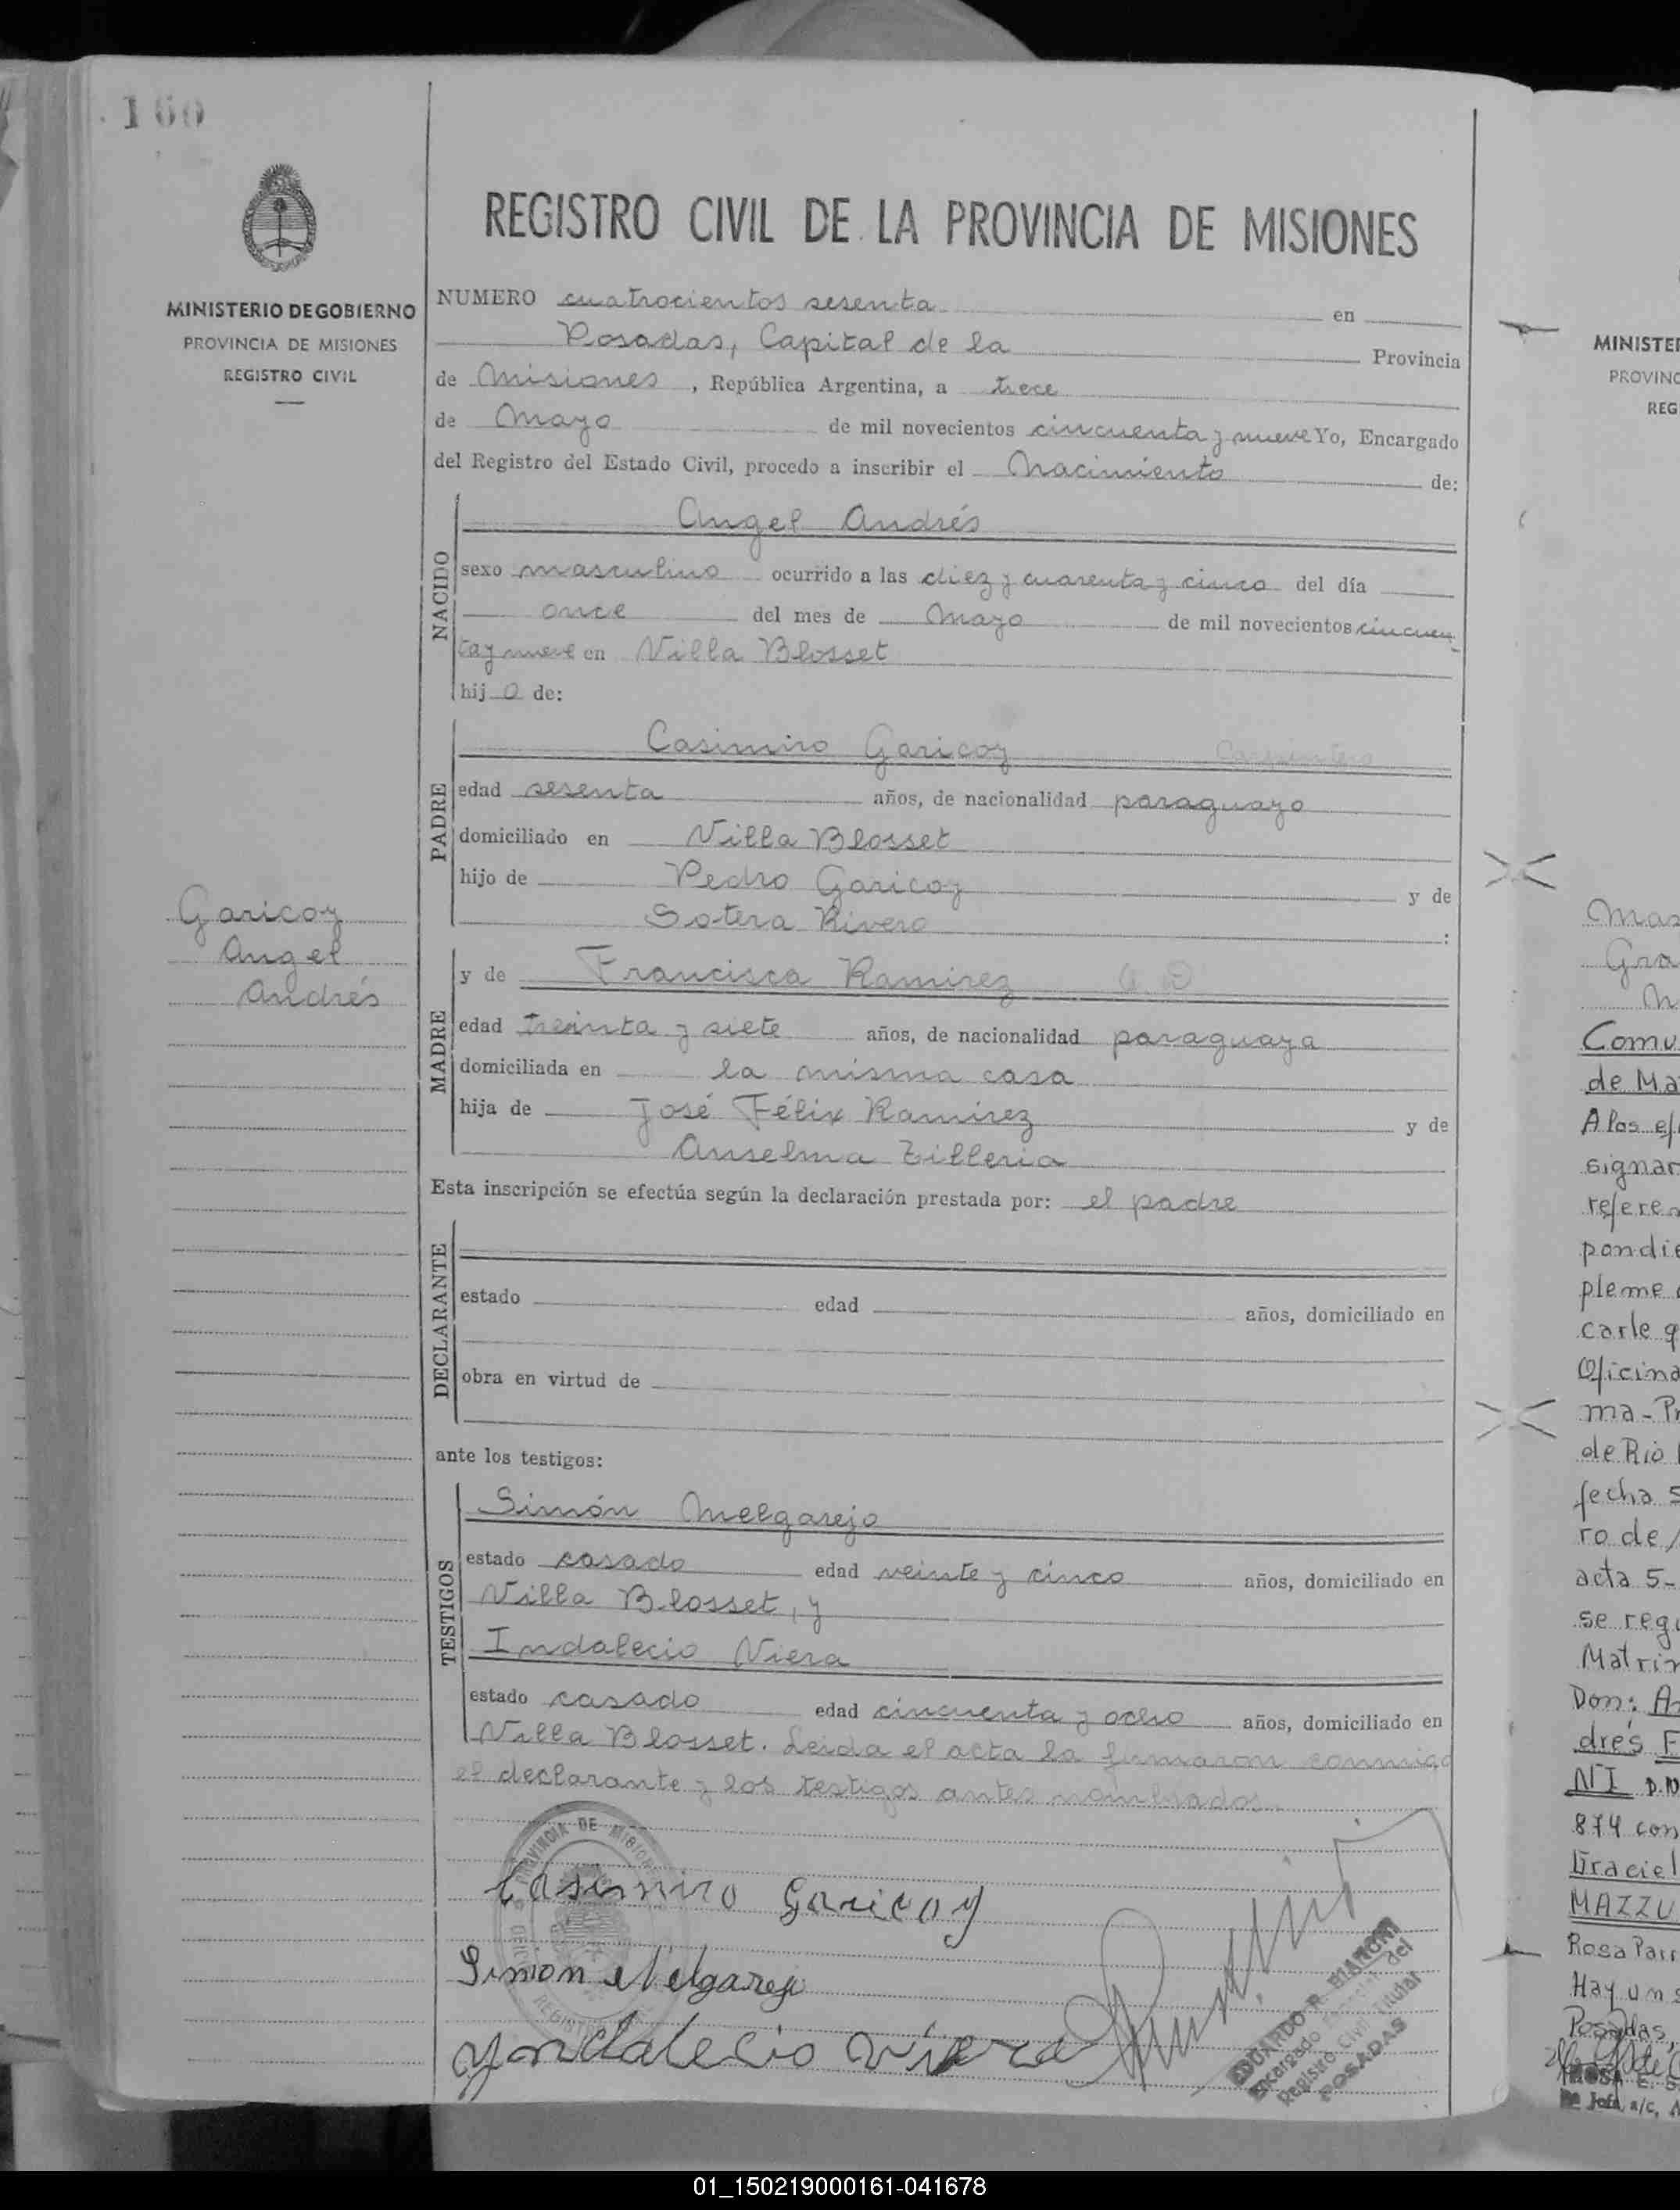 160
MINISTERIO DE GOBIERNO
PROVINCIA DE MISIONES
REGISTRO CIVIL
Garicoy
Angel
Andrés
REGISTRO CIVIL DE LA PROVINCIA DE MISIONES
NUMERO cuatrocientos sesenta en
Posadas, Capital de la Provincia
de Misiones, República Argentina, a trece
de Mayo de mil novecientos cincuenta y nueve Yo, Encargado
del Registro del Estado Civil, procedo a inscribir el Nacimiento de:
NACIDO
Angel Andrés
sexo masculino ocurrido a las diez y cuarenta y cinco del día
once del mes de Mayo de mil novecientos cincuen
ta y nueve en Villa Blosset
hijo de:
PADRE
Casimiro Garicoy Carpintero
edad sesenta años, de nacionalidad paraguayo
domiciliado en Villa Blosset
hijo de Pedro Garicoy y de
Sotera Rivero :
MADRE
y de Francisca Ramirez
edad treinta y siete años, de nacionalidad paraguaya
domiciliada en la misma casa
hija de José Félix Ramirez y de
Anselma Zilleria
Esta inscripción se efectúa según la declaración prestada por: el padre
DECLARANTE
estado edad años, domiciliado en
obra en virtud de
ante los testigos:
TESTIGOS
Simón Melgarejo
estado casado edad veinte y cinco años, domiciliado en
Villa Blosset, y
Indalecio Viera
estado casado edad cincuenta y ocho años, domiciliado en
Villa Blosset. Leida el acta la firmaron conmigo
el declarante y los testigos antes nombrados.
PROVINCIA DE MISIONES
Casimiro Garicoy
Simon Melgarejo
Yondalecio viera
EDUARDO R. BIANCHI
Encargado del
Registro Civil Titular
POSADAS
MINISTER
PROVINC
REG
Mas
Gra
Comu
de Ma
A los ef
signar
referen
pondie
pleme
carle q
Oficina
ma-Pr
de Rio
fecha 5
ro de
acta 5-
se regi
Matrin
Don: An
drés F
NI
874 con
Graciel
MAZZU
Rosa Parr
Hay un s
Posadas,
01_150219000161-041678